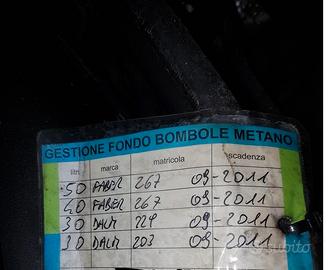 GESTIONE FONDO BOMBOLE METANO
litri marca matricola scadenza
50 FABER 267 09-2011
40 FABER 267 09-2011
30 DALM 229 09-2011
30 DALM 203 09-2011
subito